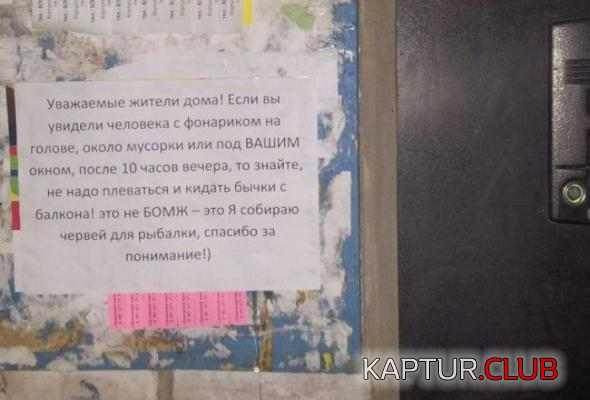 Уважаемые жители дома! Если вы
увидели человека с фонариком на
голове, около мусорки или под ВАШИМ
окном, после 10 часов вечера, то знайте,
не надо плеваться и кидать бычки с
балкона! это не БОМЖ – это Я собираю
червей для рыбалки, спасибо за
понимание!)
KAPTUR.CLUB